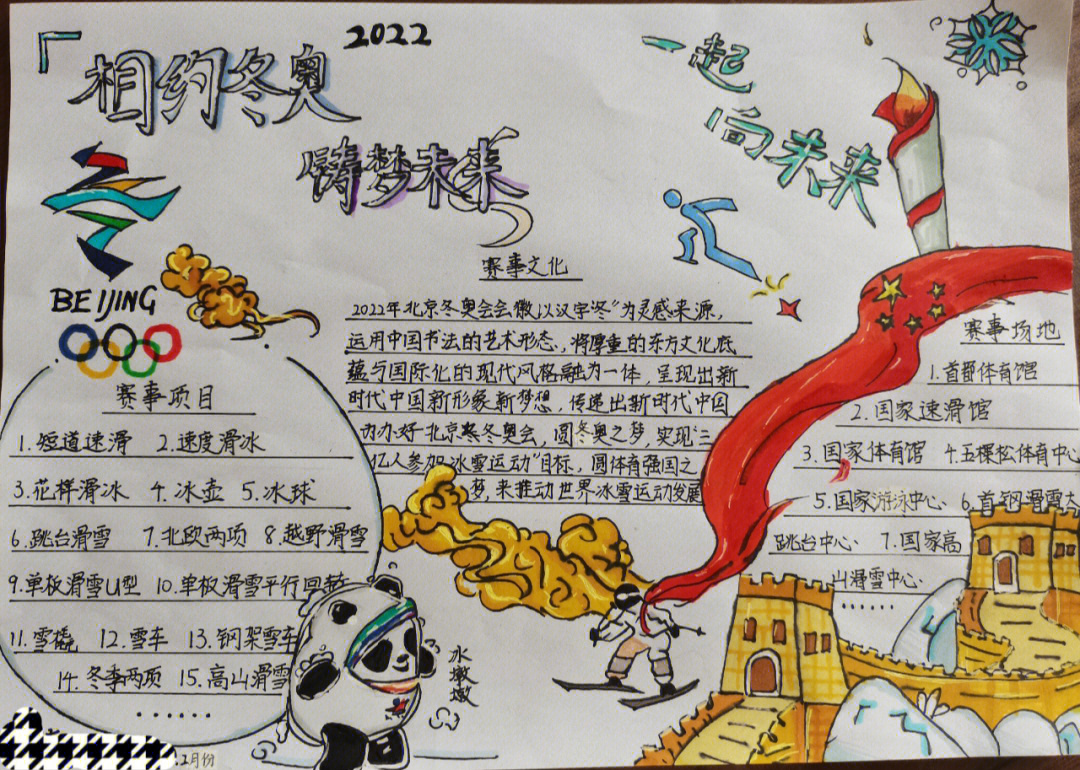 「相约冬奥
2022
铸梦未来
一起
向未来
BEIJING
赛事项目
1.短道速滑 2.速度滑冰
3.花样滑冰 4.冰壶 5.冰球
6.跳台滑雪 7.北欧两项 8.越野滑雪
9.单板滑雪U型 10.单板滑雪平行回转
11.雪橇 12.雪车 13.钢架雪车
14.冬季两项 15.高山滑雪
······
赛事文化
2022年北京冬奥会会徽以汉字“冬”为灵感来源,
运用中国书法的艺术形态,将厚重的东方文化底
蕴与国际化的现代风格融为一体,呈现出新
时代中国新形象新梦想,传递出新时代中国
办办好北京冬奥会,圆冬奥之梦,实现“三
亿人参加冰雪运动”目标,圆体育强国之
梦,来推动世界冰雪运动发展
冰墩墩
赛事场地
1.首都体育馆
2.国家速滑馆
3.国家体育馆 4.五棵松体育中心
5.国家游泳中心 6.首钢滑雪大
跳台中心 7.国家高
山滑雪中心
······
2月份